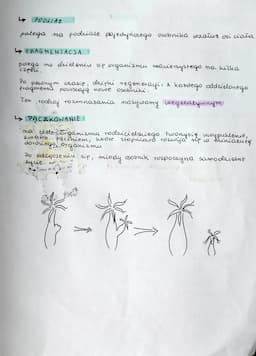 ↳ PODZIAŁ
polega na podziale pojedynczego osobnika wzdłuż osi ciała
↳ FRAGMENTACJA
polega na dzieleniu się organizmu macierzystego na kilka
części.
Po pewnym czasie, dzięki regeneracji, z każdego oddzielonego
fragmentu powstają nowe osobniki.
Ten rodzaj rozmnażania nazywamy wegetatywnym
↳ PĄCZKOWANIE
na ciele organizmu rodzicielskiego tworzy się uwypuklenie,
zwane pączkiem, które stopniowo rozwija się w miniaturę
dorosłego organizmu
Po odłączeniu się, młody osobnik rozpoczyna samodzielne
życie.